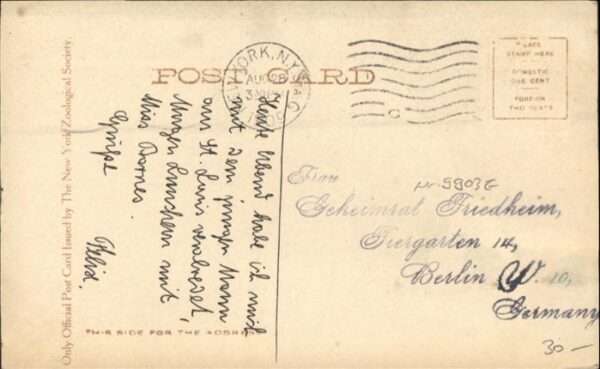 POST CARD
NEW YORK, N.Y.
AUG 28
PLACE
STAMP HERE
DOMESTIC
ONE CENT
FOREIGN
TWO CENTS
Only Official Post Card Issued by The New York Zoological Society.
Heute Abend habe ich mich
mit dem jungen Mann
aus St. Louis verabredet,
Morgen Lunchen mit
Miss Barnes.
Grüße
Felix.
THIS SIDE FOR THE ADDRESS
Frau
Geheimrat Friedheim,
Tiergarten 14,
Berlin W. 10,
Germany
30 —